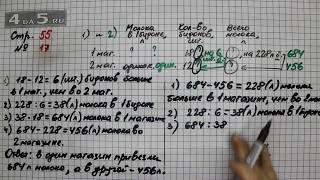 4DA5.RU
Стр. 55
№ 17
1) и 2)
Молока в 1 бироне, л
Кол-во биронов, шт.
Всего молока, л
1 маг. 18 на 228л > 684
2 маг. один. 12 456
1) 18-12=6(шт.) биронов больше
в 1 маг., чем во 2 маг.
2) 228:6=38(л) молока в 1 бироне
3) 38·18=684(л) молока в 1 магазине
4) 684-228=456(л) молока во
2 магазине.
Ответ: в один магазин привезли
684л молока, а в другой - 456л.
1) 684-456=228(л) молока
больше в 1 магазине, чем во 2 маг.
2) 228:6=38(л) молока в 1 бироне
3) 684:38